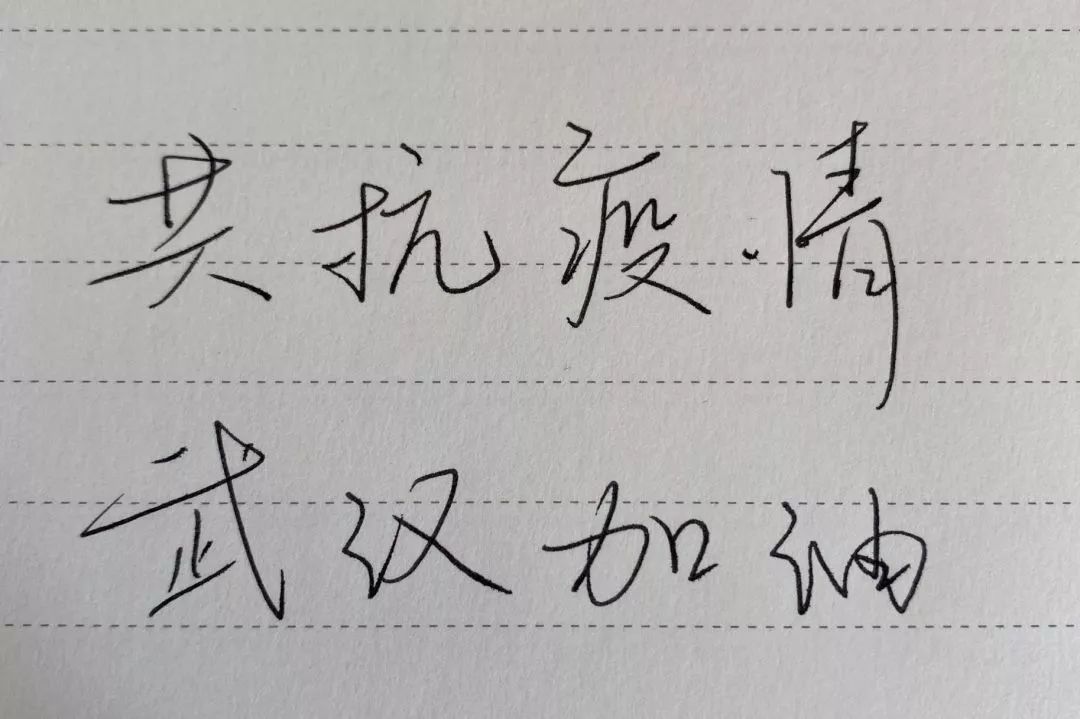 共抗疫情
武汉加油